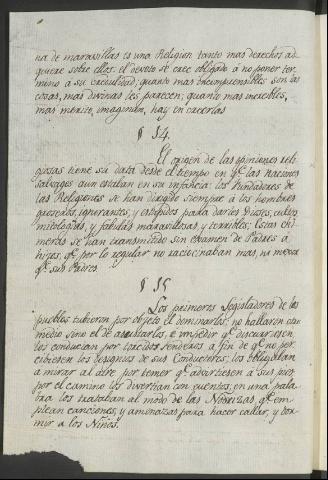 na de maravillas es una Religion tanto mas derechos ad
quiere sobre ellos: el devoto se cree obligado á no poner ter
mino á su credulidad; quanto mas incomprensibles son las
cosas, mas divinas les parecen; quanto mas increibles,
mas merito, imaginan, hay en creerlas
§ 14.
El origen de las opiniones reli
giosas tiene su data desde el tiempo en qe. las naciones
salvages aun estaban en su infancia: los Fundadores de
las Religiones se han dirigido siempre á los hombres
groseros, ignorantes, y estupidos para darles Dioses, cultos,
mitologias, y fabulas maravillosas y terribles: Estas chi
meras se han transmitido sin examen de Padres á
hijos, qe. por lo regular no raciocinaban mas, ni mejor
qe. sus Padres
§ 15
Los primeros Legisladores de los
pueblos tubieron por objeto el dominarlos, no hallaron otro
medio sino el de asustarlos, é impedir qe. discurriesen
los conducian por torcidos senderos á fin de qe. no per
cibiesen los designios de sus Conductores; los obligaban
a mirar al aire por temer qe. advirtiesen á sus pies,
por el camino los divertian con quentos; en una pala
bra los trataban al modo de las Nodrizas, qe. em
plean canciones, y amenazas para hacer callar, y dor
mir a los Niños.